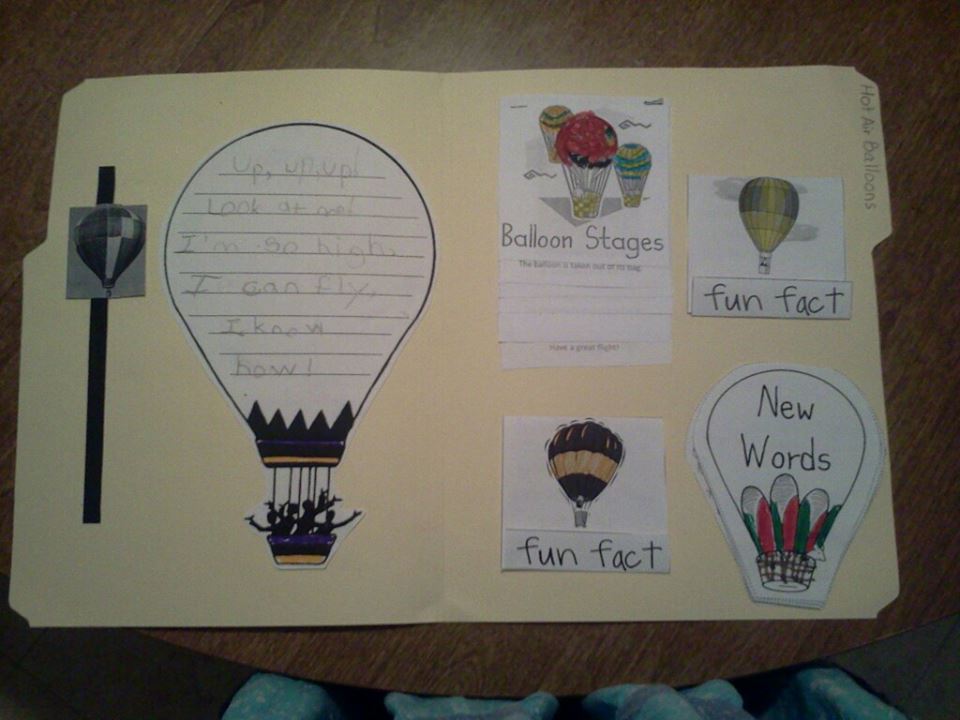 Up, up, up!
Look at me!
I'm so high,
I can fly,
I know
how!
Balloon Stages
The balloon is taken out of its bag.
Have a great flight!
Hot Air Balloons
fun fact
fun fact
New
Words